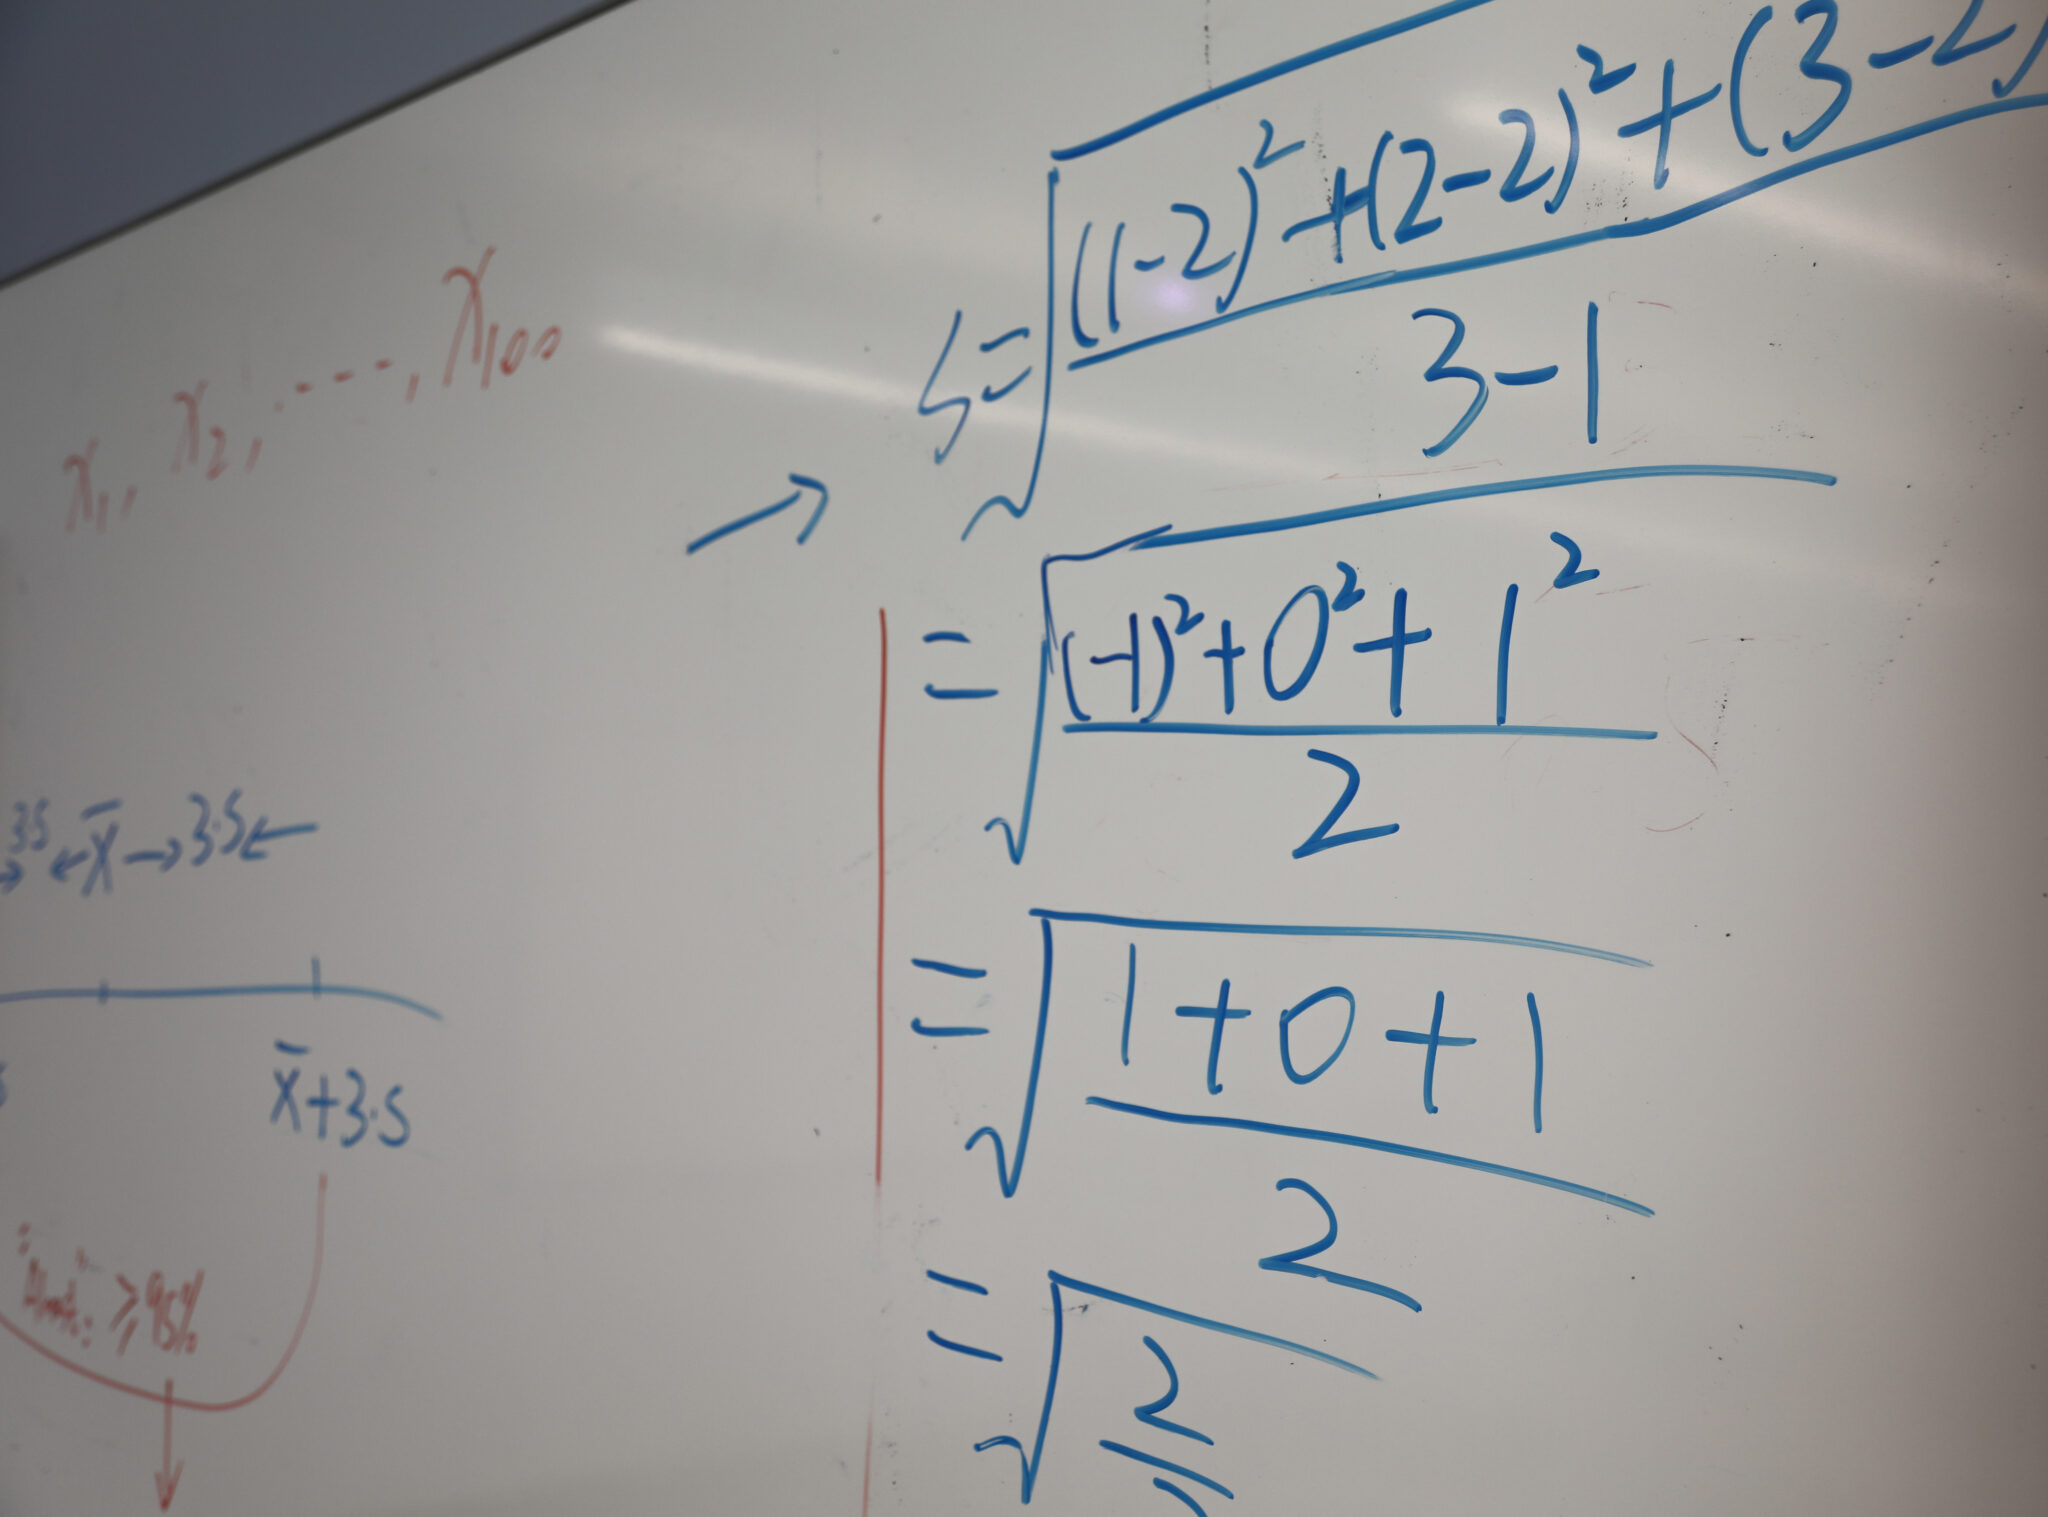 x₁, x₂, ...., x₁₀₀
3S ← x̄ → 3·S ←
x̄+3·S
≥95%
→
S = √(((1-2)² + (2-2)² + (3-2)) / (3-1))
= √(((-1)² + 0² + 1²) / 2)
= √((1+0+1) / 2)
= √(2/